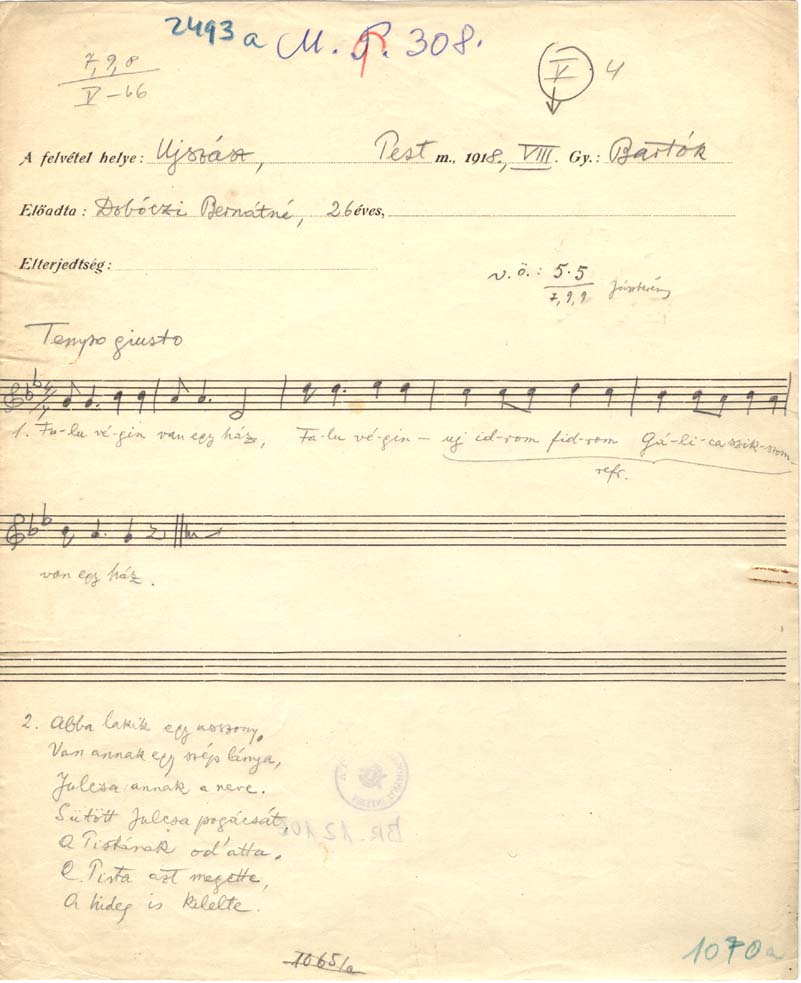 2493a M. F. 308.
7, 9, 8
V–66
V 4
A felvétel helye: Ujszász, Pest m., 1918., VIII. Gy.: Bartók
Előadta: Dobóczi Bernátné, 26 éves,
Elterjedtség:
v. ö.: 5.5
7, 9, 9
Tempo giusto
1. Fa-lu vé-gin van egy ház, Fa-lu vé-gin – uj id-rom fid-rom Gá-li-ca szik-szom-
refr.
van egy ház.
2. Abba lakik egy asszony,
Van annak egy szép lánya,
Julcsa annak a neve.
Sütött Julcsa pogácsát,
A Pistának od'atta.
A Pista azt megette,
A hideg is kilelte.
BR. 12
1065/a
1070a